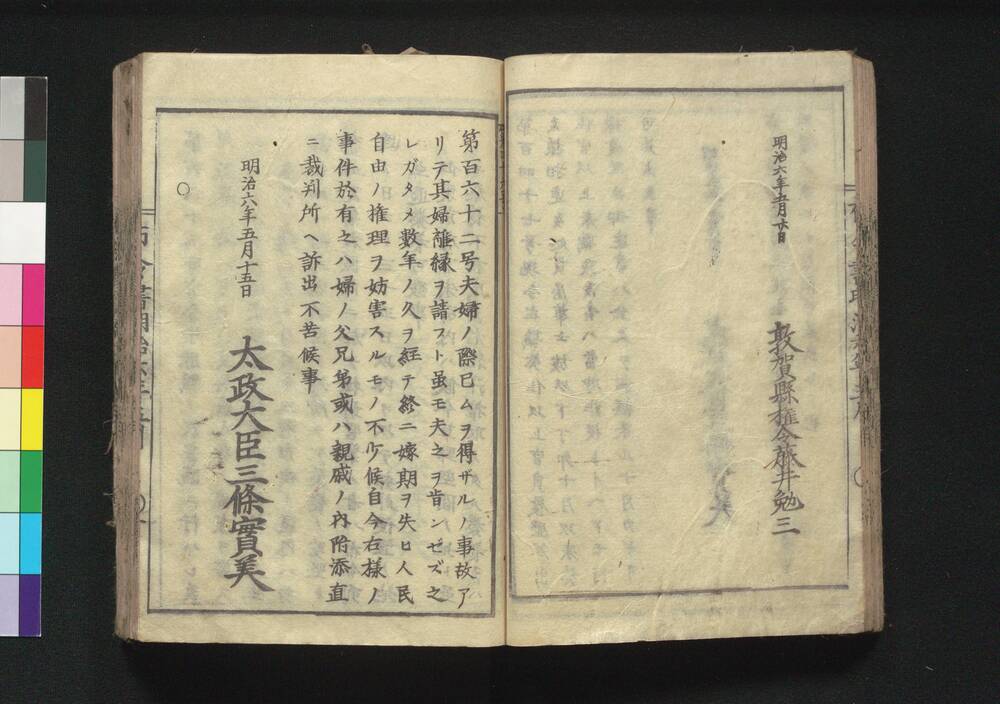 明治六年五月廿日
敦賀縣権令藤井勉三
第百六十二号夫婦ノ際已ムヲ得ザルノ事故ア
リテ其婦離縁ヲ請フト虽モ夫之ヲ肯ンゼズ之
レガタメ数年ノ久ヲ経テ終ニ嫁期ヲ失ヒ人民
自由ノ権理ヲ妨害スルモノ不少候自今右様ノ
事件於有之ハ婦ノ父兄弟或ハ親戚ノ内附添直
ニ裁判所ヘ訴出不苦候事
明治六年五月十五日
太政大臣三條實美